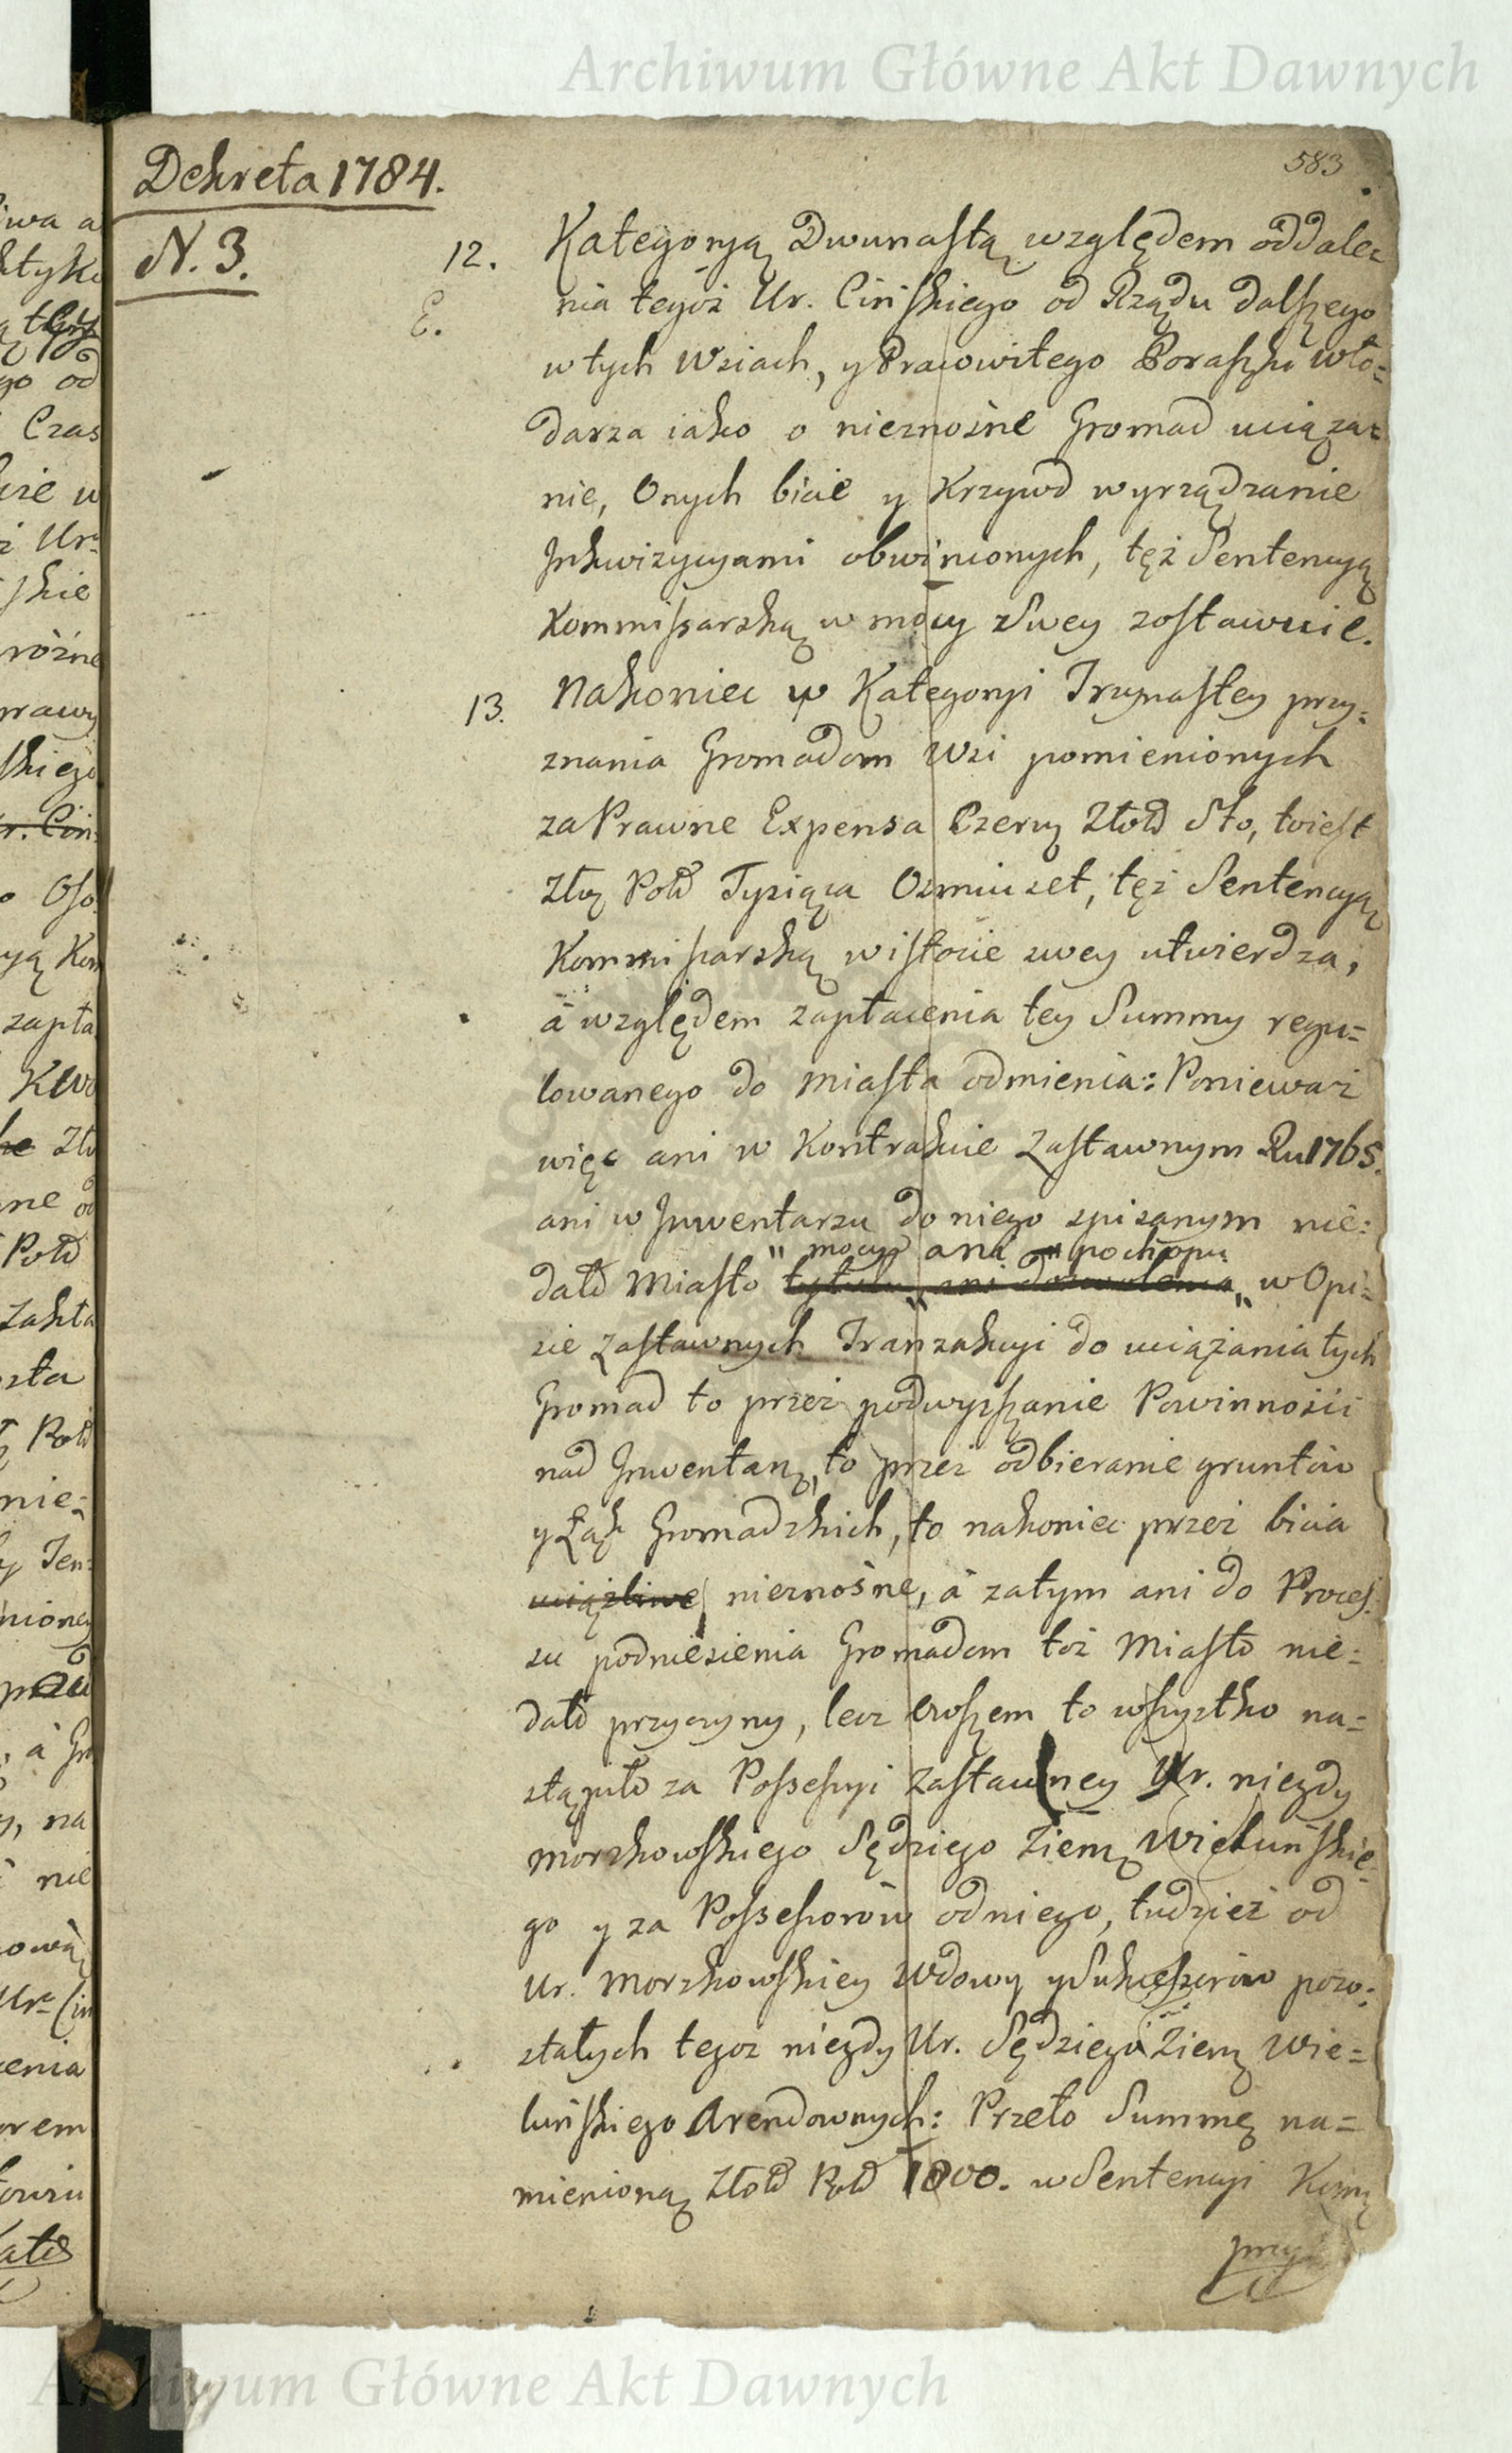 Archiwum Główne Akt Dawnych
583
Dekreta 1784.
N. 3.
12. Kategoryą Dwunastą względem oddale=
E. nia tegoż Ur. Cińskiego od Rządu dalszego
w tych Wsiach, y Pracowitego Poraszki Wło=
darza iako o nieznośne Gromad uciąża=
nie, Onych bicie y Krzywd wyrządzanie
Inkwizycyami obwinionych, też Sentencyą
Kommissarską w mocy Swey zostawuie.
13. Nakoniec w Kategoryi Trzynastey przy=
znania Gromadom Wsi pomienionych
za Prawne Expensa Czerw Złotd Sto, toiest
Złtz Pold Tysiąca Osmiuset, też Sentencyą
Kommissarską w istocie swey utwierdza,
à względem zapłacenia tey Summy regu=
lowanego do Miasta odmienia: Ponieważ
więc ani w Kontrakcie Zastawnym Ru 1765.
ani w Inwentarzu do niego spisanym nie=
" mocy ani " pochopu
dałd Miasto tytułu, ani dozwolenia " w Opi=
sie Zastawnych Tranzakcyi do uciążania tych
Gromad to przez podwyższanie Powinności
nad Inwentarz, to przez odbieranie gruntów
y Łąk Gromadzkich, to nakoniec przez bicia
uciążliwe nieznośne, à zatym ani do Proces=
su podniesienia Gromadom toż Miasto nie=
dałd przyczyny, lecz owszem to wszystko na=
stąpiło za Possessyi Zastawney Ur. niegdy
Morzkowskiego Sędziego Ziemz Wieluńskie=
go y za Possessorów od niego, tudzież od
Ur. Morzkowskiey Wdowy y Sukcessorów pozo=
stałych tegoż niegdy Ur. Sędziego Ziemz Wie=
luńskiego Arendownych: Przeto Summę na=
mienioną Złotd Pold 1800. w Sentencyi Komz
przy
Archiwum Główne Akt Dawnych